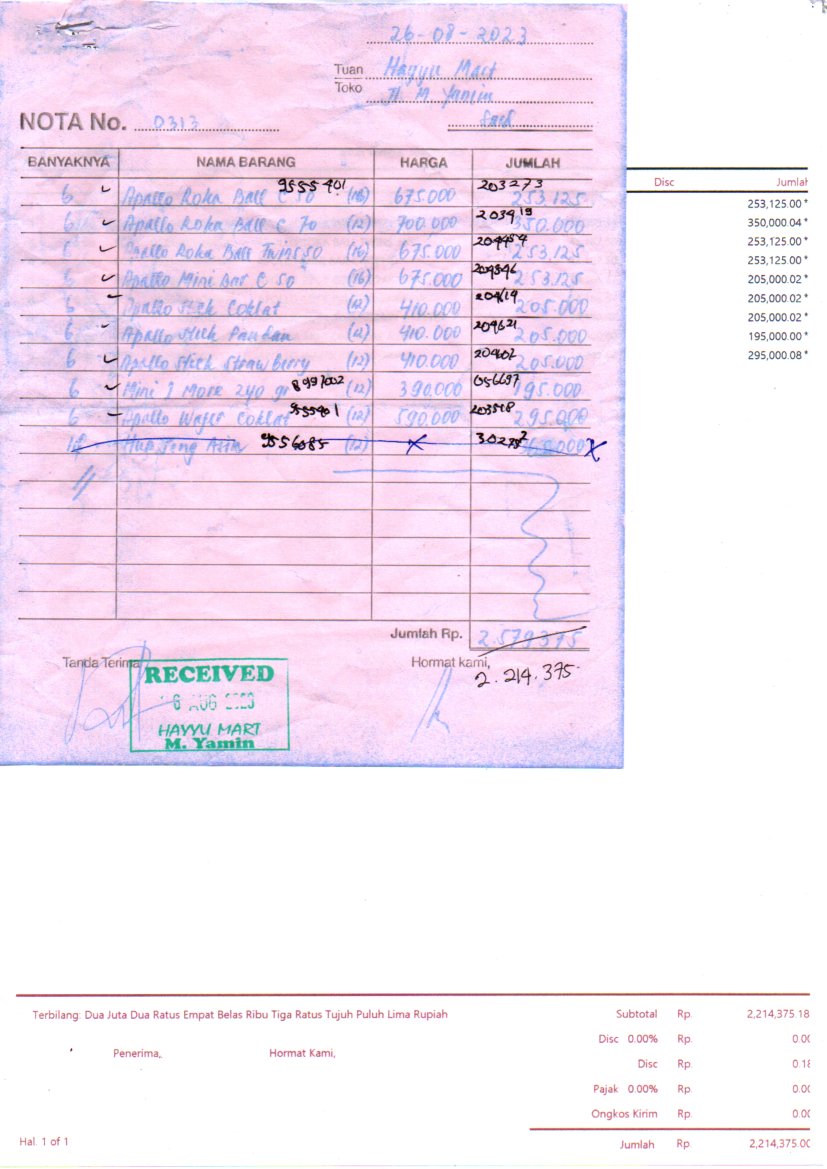 26-08-2023
Tuan Hayyu Mart
Toko Jl. M. Yamin
NOTA No. 0313
BANYAKNYA NAMA BARANG HARGA JUMLAH
Disc Jumlah
6 Apollo Roka Ball C 50 9555401 (16) 675.000 203273 253.125
253,125.00 *
6 Apollo Roka Ball C 70 (12) 700.000 203419 350.000
350,000.04 *
6 Apollo Roka Ball Twins 50 (16) 675.000 253.125
253,125.00 *
6 Apollo Mini Bar C 50 (16) 675.000 253.125
253,125.00 *
6 Apollo Stick Coklat (12) 410.000 204614 205.000
205,000.02 *
6 Apollo Stick Pandan (12) 410.000 204621 205.000
205,000.02 *
6 Apollo Stick Strawberry (12) 410.000 204607 205.000
205,000.02 *
6 Mini 1 More 240 gr 8997002 (12) 390.000 056697 195.000
195,000.00 *
6 Apollo Wafer Coklat (12) 590.000 203518 295.000
295,000.08 *
9556085 (12)
Jumlah Rp. 2.579375
Tanda Terima Hormat kami, 2.214.375
RECEIVED
AUG
HAYYU MART
M. Yamin
Terbilang: Dua Juta Dua Ratus Empat Belas Ribu Tiga Ratus Tujuh Puluh Lima Rupiah Subtotal Rp. 2,214,375.18
Disc 0.00% Rp. 0.00
Penerima, Hormat Kami,
Disc Rp. 0.18
Pajak 0.00% Rp. 0.00
Ongkos Kirim Rp. 0.00
Hal. 1 of 1 Jumlah Rp. 2,214,375.00